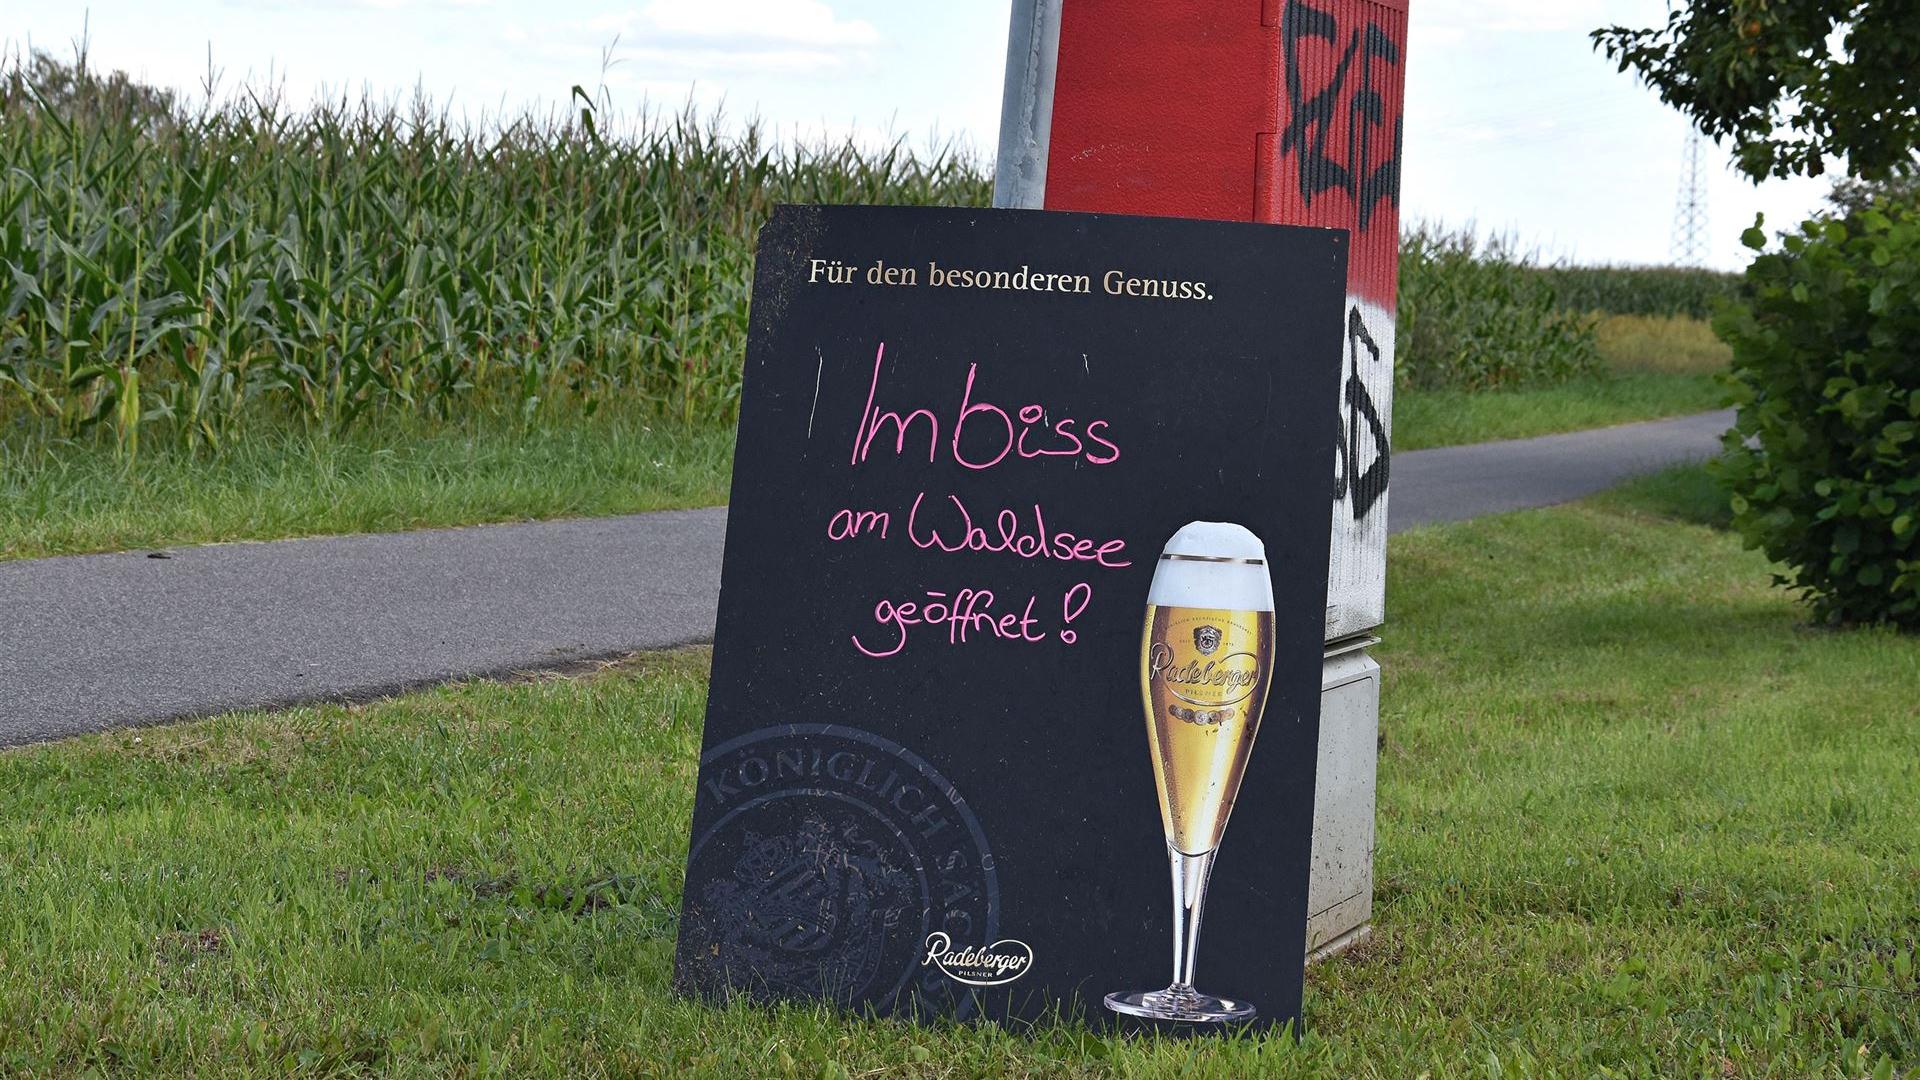 Für den besonderen Genuss.
Imbiss
am Waldsee
geöffnet!
Radeberger
PILSNER
KÖNIGLICH SÄCHS
Radeberger
PILSNER